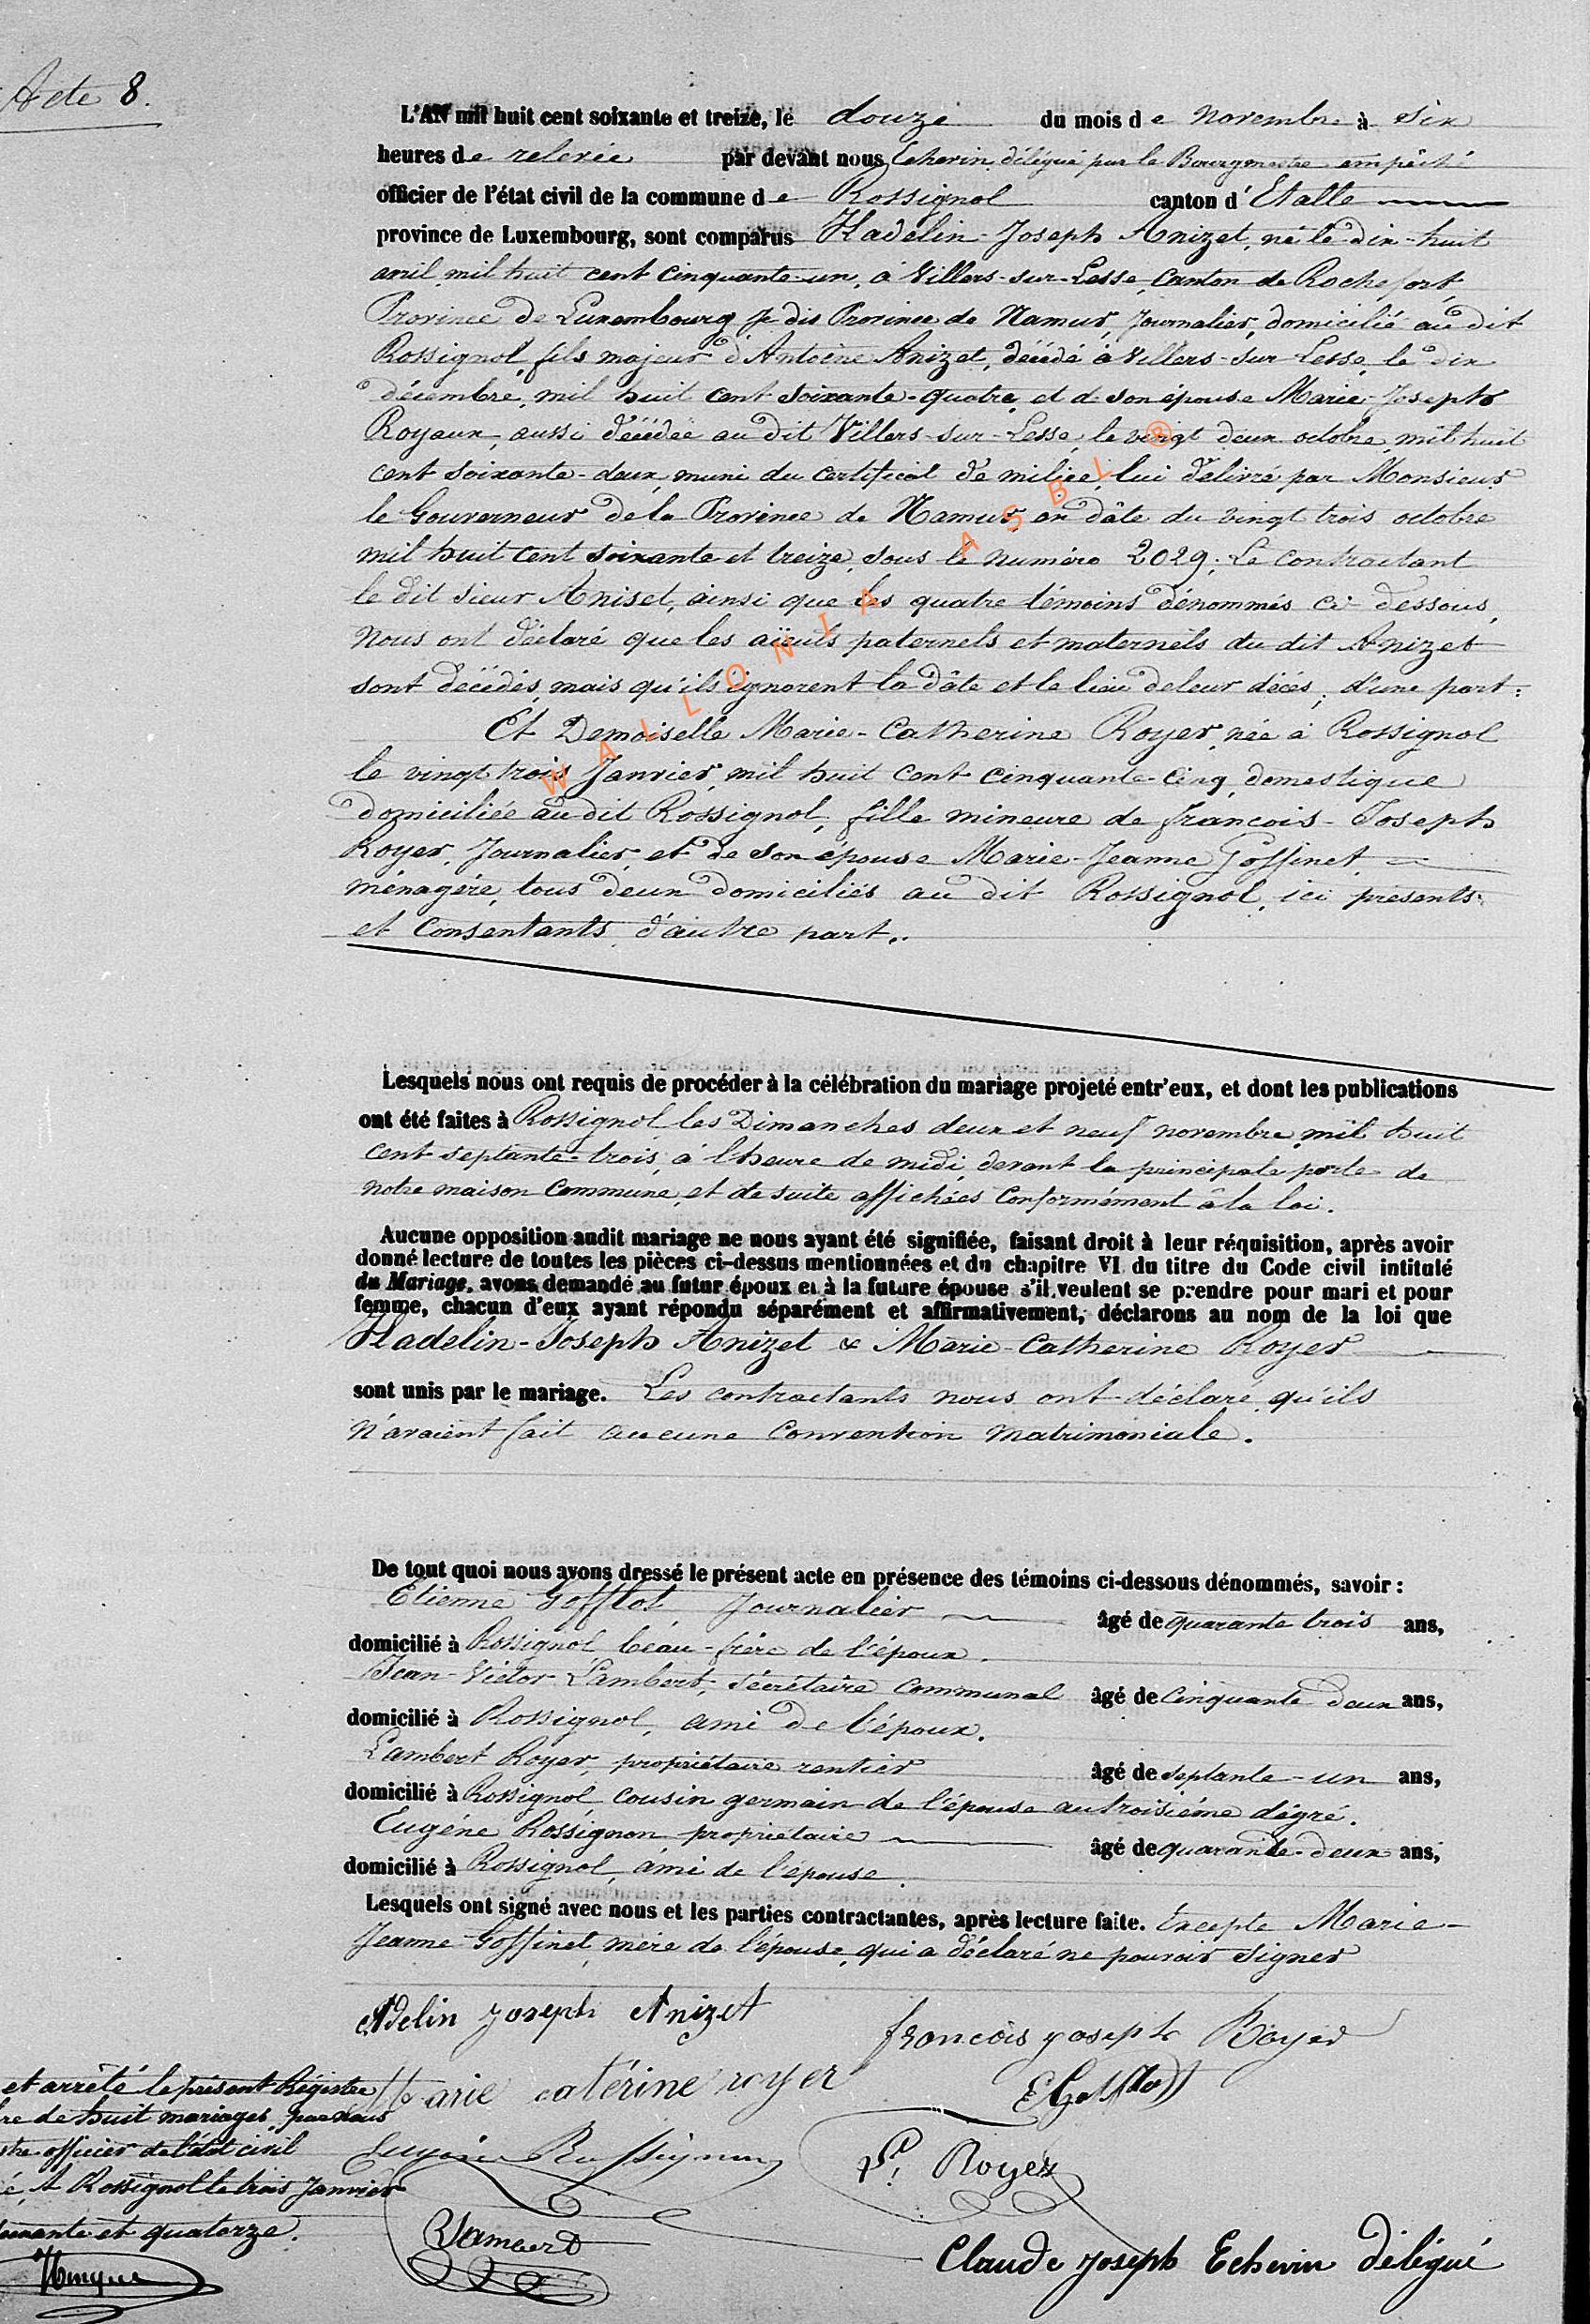 Acte 8.
L'AN mil huit cent soixante et treize, le douze du mois de Novembre à Six
heures de relevée par devant nous Echevin délégué par le Bourgmestre empêché
officier de l'état civil de la commune de Rossignol canton d'Etalle
province de Luxembourg, sont comparus Hadelin-Joseph Anizet, né le dix-huit
avril mil huit cent cinquante-un, à Villers-sur-Lesse, Canton de Rochefort,
Province de Luxembourg je dis Province de Namur, Journalier, domicilié au dit
Rossignol, fils majeur d'Antoine Anizet, décédé à Villers-sur-Lesse, le dix
décembre, mil huit cent soixante-quatre, et d son épouse Marie-Joseph
Royaux, aussi décédée au dit Villers-sur-Lesse, le vingt deux octobre, mil huit
cent soixante-deux, muni du certificat de milice, lui délivré par Monsieur
le Gouverneur de la Province de Namur en dâte du vingt trois octobre
mil huit cent soixante et treize, sous le numéro 2029; Le contractant
le dit sieur Aniset, ainsi que les quatre témoins dénommés ci-dessous,
Nous ont déclaré que les aïeuls paternels et maternels du dit Anizet
sont décédés, mais qu'ils ignorent la dâte et le lieu de leur décès; d'une part:
Et Demoiselle Marie-Catherine Royer, née à Rossignol
le vingt trois Janvier, mil huit cent cinquante-cinq, domestique
domiciliée au dit Rossignol, fille mineure de françois-Joseph
Royer, Journalier, et de son épouse Marie-Jeanne Goffinet,
ménagère, tous deux domiciliés au dit Rossignol, ici présents
et Consentants, d'autre part.
WALLONIA ASBL ®
Lesquels nous ont requis de procéder à la célébration du mariage projeté entr'eux, et dont les publications
ont été faites à Rossignol les Dimanches deux et neuf novembre mil huit
cent septante-trois, à l'heure de midi, devant la principale porte de
notre maison Commune, et de suite affichées Conformément à la loi.
Aucune opposition audit mariage ne nous ayant été signifiée, faisant droit à leur réquisition, après avoir
donné lecture de toutes les pièces ci-dessus mentionnées et du chapitre VI du titre du Code civil intitulé
du Mariage, avons demandé au futur époux et à la future épouse s'il veulent se prendre pour mari et pour
femme, chacun d'eux ayant répondu séparément et affirmativement, déclarons au nom de la loi que
Hadelin-Joseph Anizet & Marie-Catherine Royer
sont unis par le mariage. Les contractants nous ont déclaré qu'ils
n'avaient fait aucune Convention matrimoniale.
De tout quoi nous avons dressé le présent acte en présence des témoins ci-dessous dénommés, savoir :
Etienne Gofflot, Journalier âgé de quarante trois ans,
domicilié à Rossignol, beau-frère de l'époux.
Jean-Victor Lambert, sécrétaire communal âgé de Cinquante deux ans,
domicilié à Rossignol, ami de l'époux.
Lambert Royer, propriétaire rentier âgé de septante-un ans,
domicilié à Rossignol, cousin germain de l'épouse au troisième dégré.
Eugéne Rossignon propriétaire âgé de quarante-deux ans,
domicilié à Rossignol, ami de l'épouse.
Lesquels ont signé avec nous et les parties contractantes, après lecture faite. Excepte Marie-
Jeanne Goffinet, mère de l'épouse, qui a déclaré ne pouvoir signer
Adelin Joseph Anizet
françois joseph Royer
Marie catérine royer
EGofflot
Eugène Rossignon
L. Royer
Lambert
Claude Joseph Echevin délégué
et arrêté le présent Régistre
re de huit mariages, par nous
stre officier de l'état civil
é, A Rossignol le trois Janvier
soixante et quatorze.